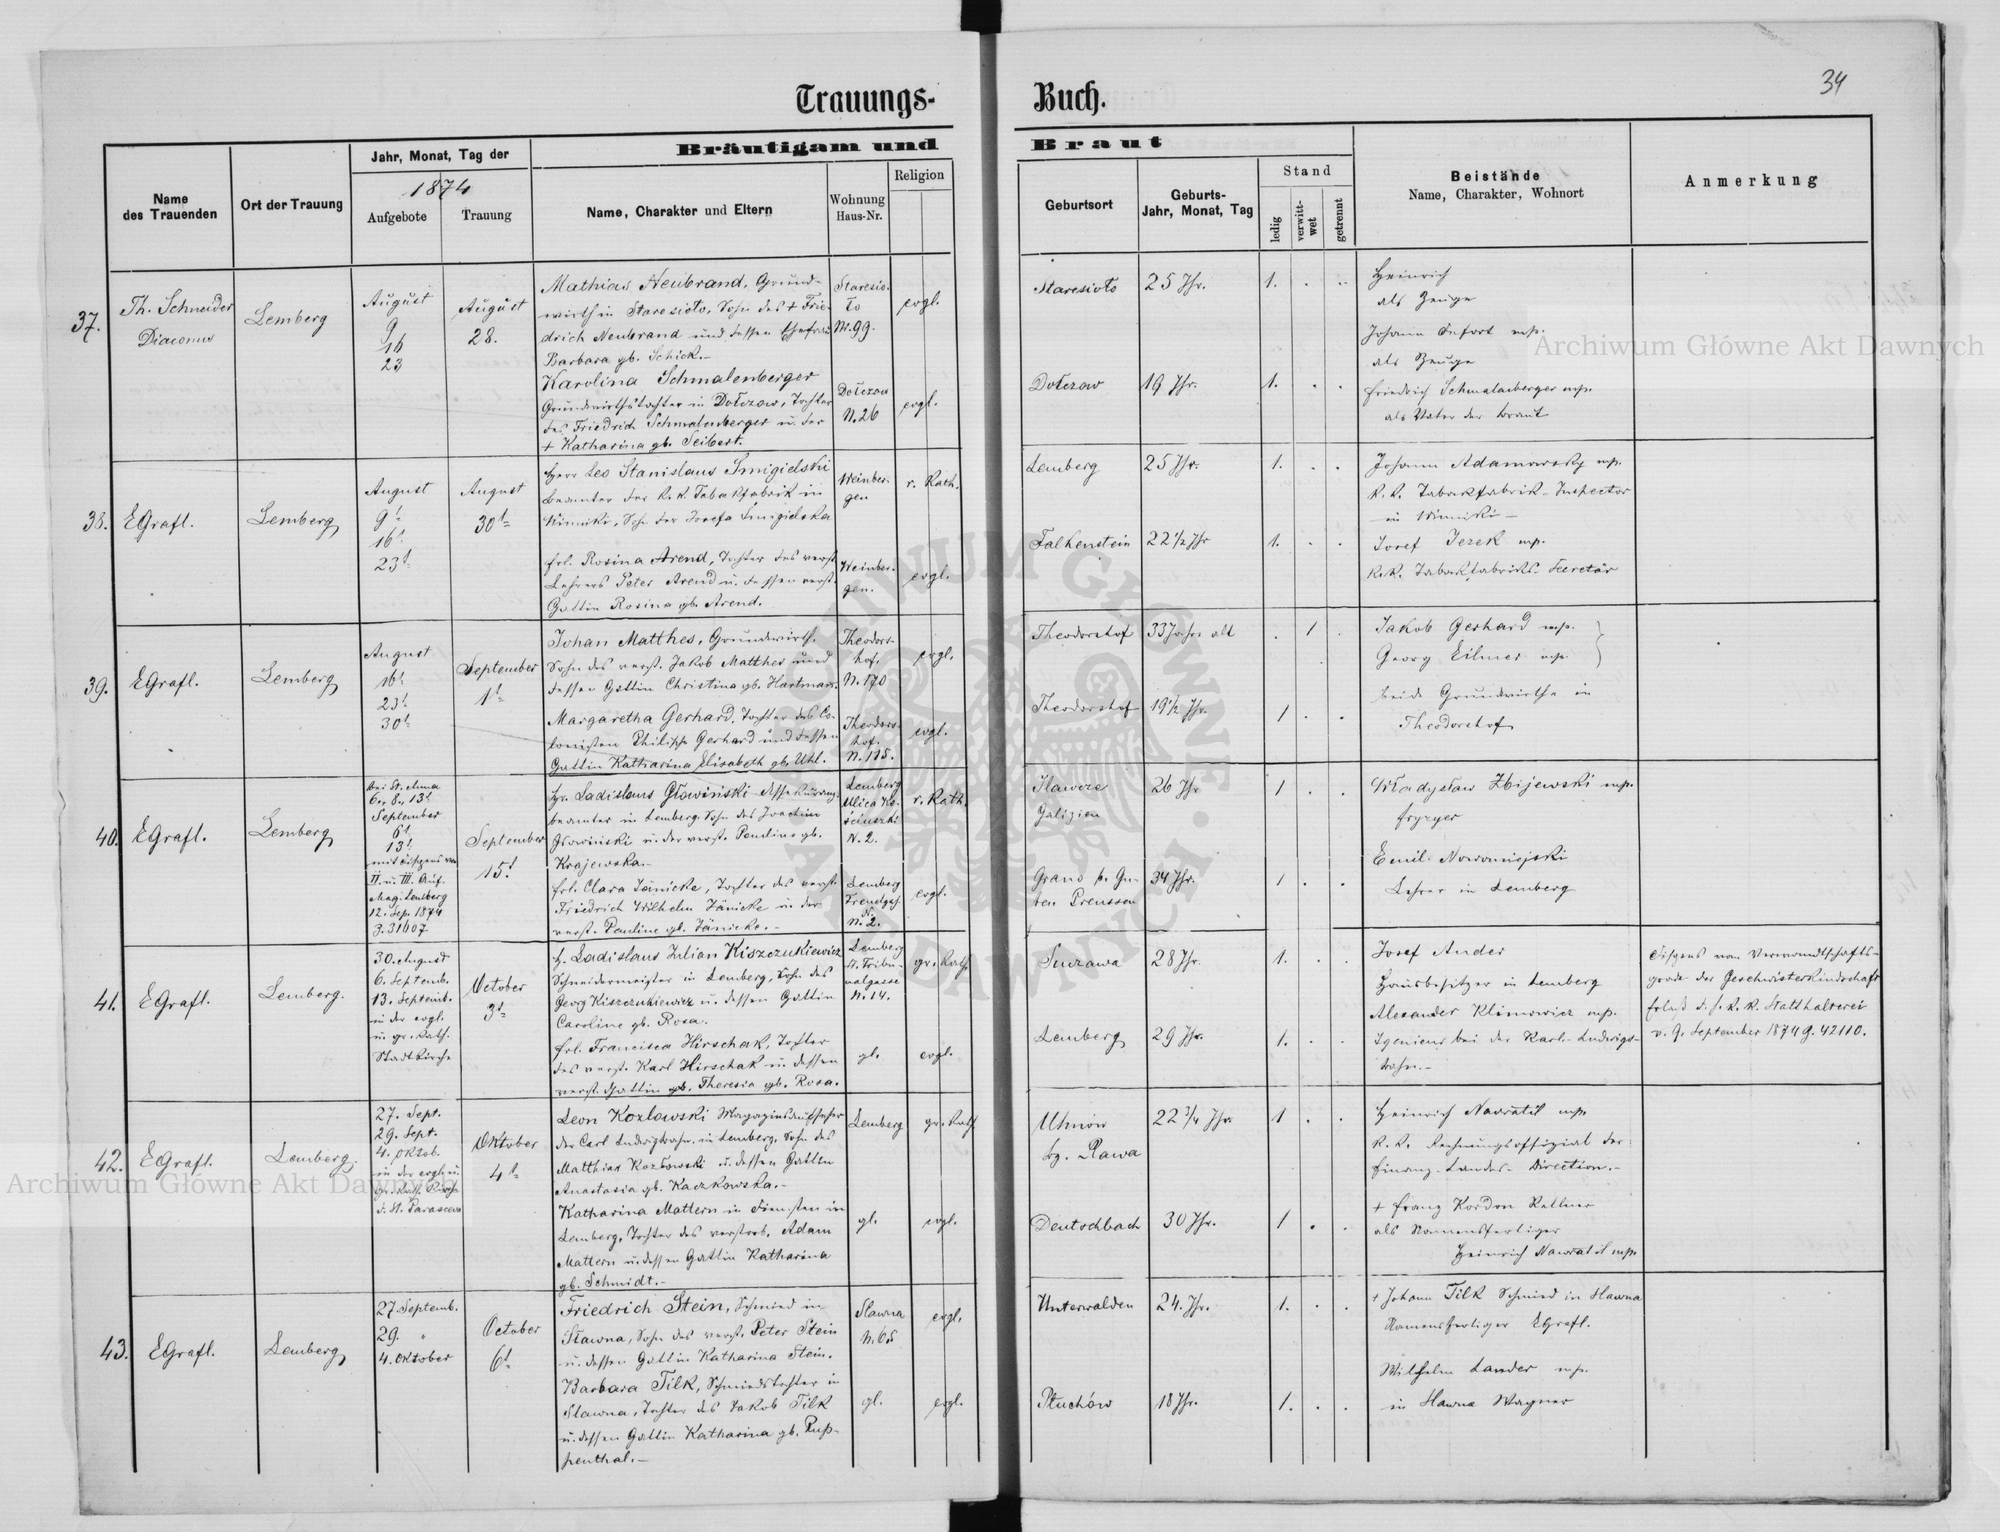 Trauungs-
Buch.
34
Name
des Trauenden
Ort der Trauung
Jahr, Monat, Tag der
1874
Aufgebote
Trauung
Bräutigam und
Name, Charakter und Eltern
Wohnung
Haus-Nr.
Religion
Braut
Geburtsort
Geburts-
Jahr, Monat, Tag
Stand
ledig
verwitt-
wet
getrennt
Beistände
Name, Charakter, Wohnort
Anmerkung
37.
Th. Schneider
Diaconus
Lemberg
August
9
16
23
August
28.
Mathias Neubrand, Grund-
wirth in Staresioto, Sohn des + Frie-
drich Neubrand und dessen Ehefrau
Barbara gb. Schick.-
Staresio-
to
N.99.
evgl.
Staresioto
25 Jhr.
1.
Karolina Schmalenberger
Grundwirthstochter in Dołczow, Tochter
des Friedrich Schmalenberger u. der
+ Katharina gb. Seibert.
Dołczow
N.26
evgl.
Dołczow
19 Jhr.
1.
Heinrich
als Zeuge
Johann
als Zeuge
Friedrich Schmalenberger mp.
als Vater der Braut
38.
EGrafl.
Lemberg
August
9t
16t
23t
August
30t
Herr Leo Stanislaus Smigielski
Beamter der k.k. Tabakfabrik in
Winniki, Sohn der Josefa Smigielska
Weinber-
gen
r. Kath.
Lemberg
25 Jhr.
1.
Frl. Rosina Arend, Tochter des verst.
Lehrers Peter Arend u. dessen verst.
Gattin Rosina gb. Arend.
Weinber-
gen.
evgl.
Falkenstein
22 1/2 Jhr
1.
Johann Adamowsky mp.
k.k. Tabakfabrik-Inspector
in Winniki -
Josef Jezek mp.
k.k. Tabakfabriks-Secretär
39.
EGrafl.
Lemberg
August
16t
23t
30t
September
1t
Johan Matthes, Grundwirth,
Sohn des verst. Jakob Matthes und
dessen Gattin Christina gb. Hartman.
Theodors-
hof.
N.170
evgl.
Theodorshof
33 Jahre alt
1
Margaretha Gerhard, Tochter des Co-
lonisten Philipp Gerhard und dessen
Gattin Katharina Elisabeth gb. Uhl.
Theodors-
hof.
N.115.
evgl.
Theodorshof
19 1/2 Jhr.
1
Jakob Gerhard mp.
Georg Eilmer mp.
beide Grundwirthe in
Theodorshof
40.
EGrafl.
Lemberg
bei St. Anna
6., 8., 13t
September
6t
13t
mit Dispens vom
II. u. III. Auf.
Mag. Lemberg
12. Sep. 1874
Z. 31607
September
15t
Hr. Ladislaus Głowiński Assekuranz-
beamter in Lemberg, Sohn des Joachim
Głowiński u. der verst. Pauline gb.
Krajewska.-
Lemberg
Ulica Ko-
ściuszki
N.2.
r. Kath.
Hawcze
Galizien
26 Jhr
1
Frl. Clara Jänicke, Tochter des verst.
Friedrich Wilhelm Jänicke u. der
verst. Pauline gb. Jänicke.-
Lemberg
N.2.
evgl.
34 Jhr.
1
Władysław Zbijewski mp.
fryzyer
Emil Nowomiejski
Lehrer in Lemberg
41.
EGrafl.
Lemberg.
30. August
6. Septemb.
13. Septemb.
in der evgl.
u. gr. Kath.
Stadtkirche
October
3t
H. Ladislaus Julian Kiszczukiewicz
Schneidermeister in Lemberg, Sohn des
Georg Kiszczukiewicz u. dessen Gattin
Caroline gb. Rosa.
Lemberg
Tribu-
nalgasse
N.14.
gr. Kath.
Suczawa
28 Jhr.
1.
Frl. Francisca Hirschak, Tochter
des verst. Karl Hirschak u. dessen
verst. Gattin gb. Theresia gb. Rosa.
gl.
evgl.
Lemberg
29 Jhr.
1.
Josef Ander
Hausbesitzer in Lemberg
Alexander Klimowicz mp.
Igenieur bei der Karl-Ludwigs-
bahn.-
Dispens vom Verwandtschafts-
grade der Geschwisterkindschaft
Erlaß d. h. k. k. Statthalterei
v. 9. September 1874 Z. 42110.
42.
EGrafl.
Lemberg.
27. Sept.
29. Sept.
4. Oktob.
in der evgl. u.
gr. Kath. Kirche
d. St. Parasceva
Oktober
4t
Leon Kozlowski Magazinsaufseher
der Carl Ludwigbahn, in Lemberg, Sohn des
Matthias Kozłowski u. dessen Gattin
Anastasia gb. Kaczkowska.-
Lemberg
gr. Kath
Uhnów
bz. Rawa
22 3/4 Jhr.
1
Katharina Mattern in Diensten in
Lemberg, Tochter des verstorb. Adam
Mattern u. dessen Gattin Katharina
gb. Schmidt.-
gl.
evgl.
Deutschbach
30 Jhr.
1
Heinrich Nawratil mp.
k.k. Rechnungsoffizial der
Finanz-Landes-Direction.-
+ Franz Kordon Kellner
als Namensfertiger
Heinrich Nawratil mp.
43.
EGrafl.
Lemberg
27. Septemb.
29. "
4. Oktober
October
6t
Friedrich Stein, Schmied in
Sławna, Sohn des verst. Peter Stein
u. dessen Gattin Katharina Stein.
Sławna
N.65
evgl.
Unterwalden
24. Jhr.
1.
Barbara Tilk, Schmiedstochter in
Sławna, Tochter des Jakob Tilk
u. dessen Gattin Katharina gb. Rup-
penthal.-
gl.
evgl.
Płuchów
18 Jhr.
1.
+ Johann Tilk Schmied in Sławna
Namensfertiger EGrafl.
Wilhelm Lander mp.
in Sławna Wagner
Archiwum Główne Akt Dawnych
Archiwum Główne Akt Dawnych
ARCHIWUM GŁÓWNE AKT DAWNYCH